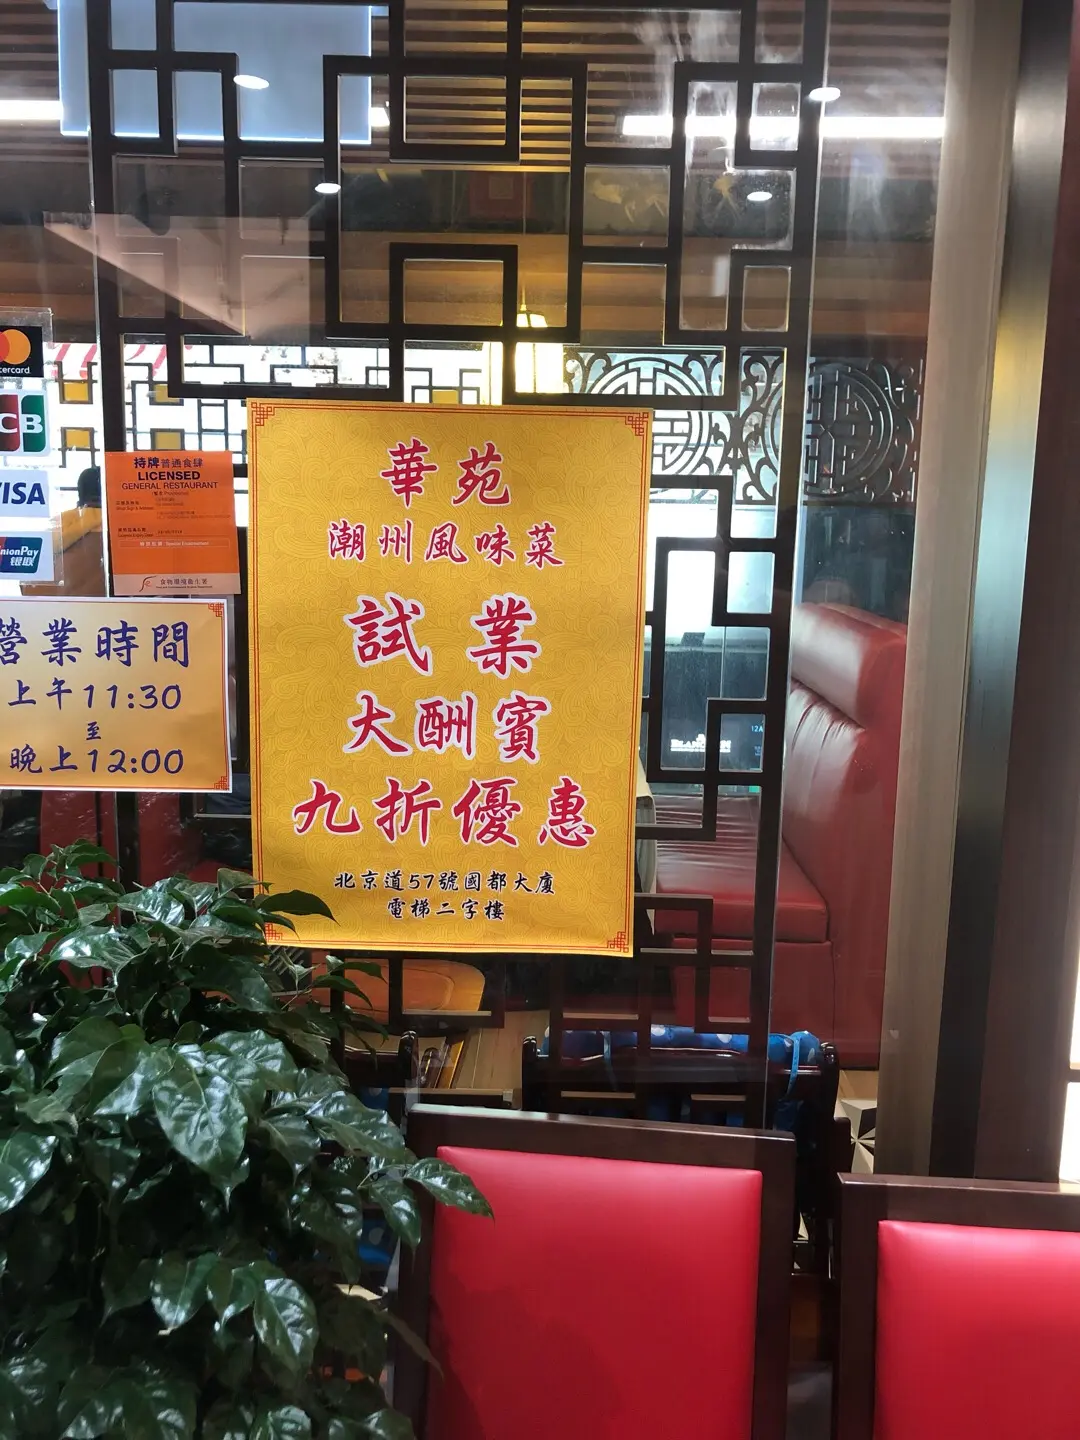 tercard
CB
VISA
UnionPay
银联
持牌普通食肆
LICENSED
GENERAL RESTAURANT
食物環境衞生署
營業時間
上午11:30
至
晚上12:00
華苑
潮州風味菜
試業
大酬賓
九折優惠
北京道57號國都大廈
電梯二字樓